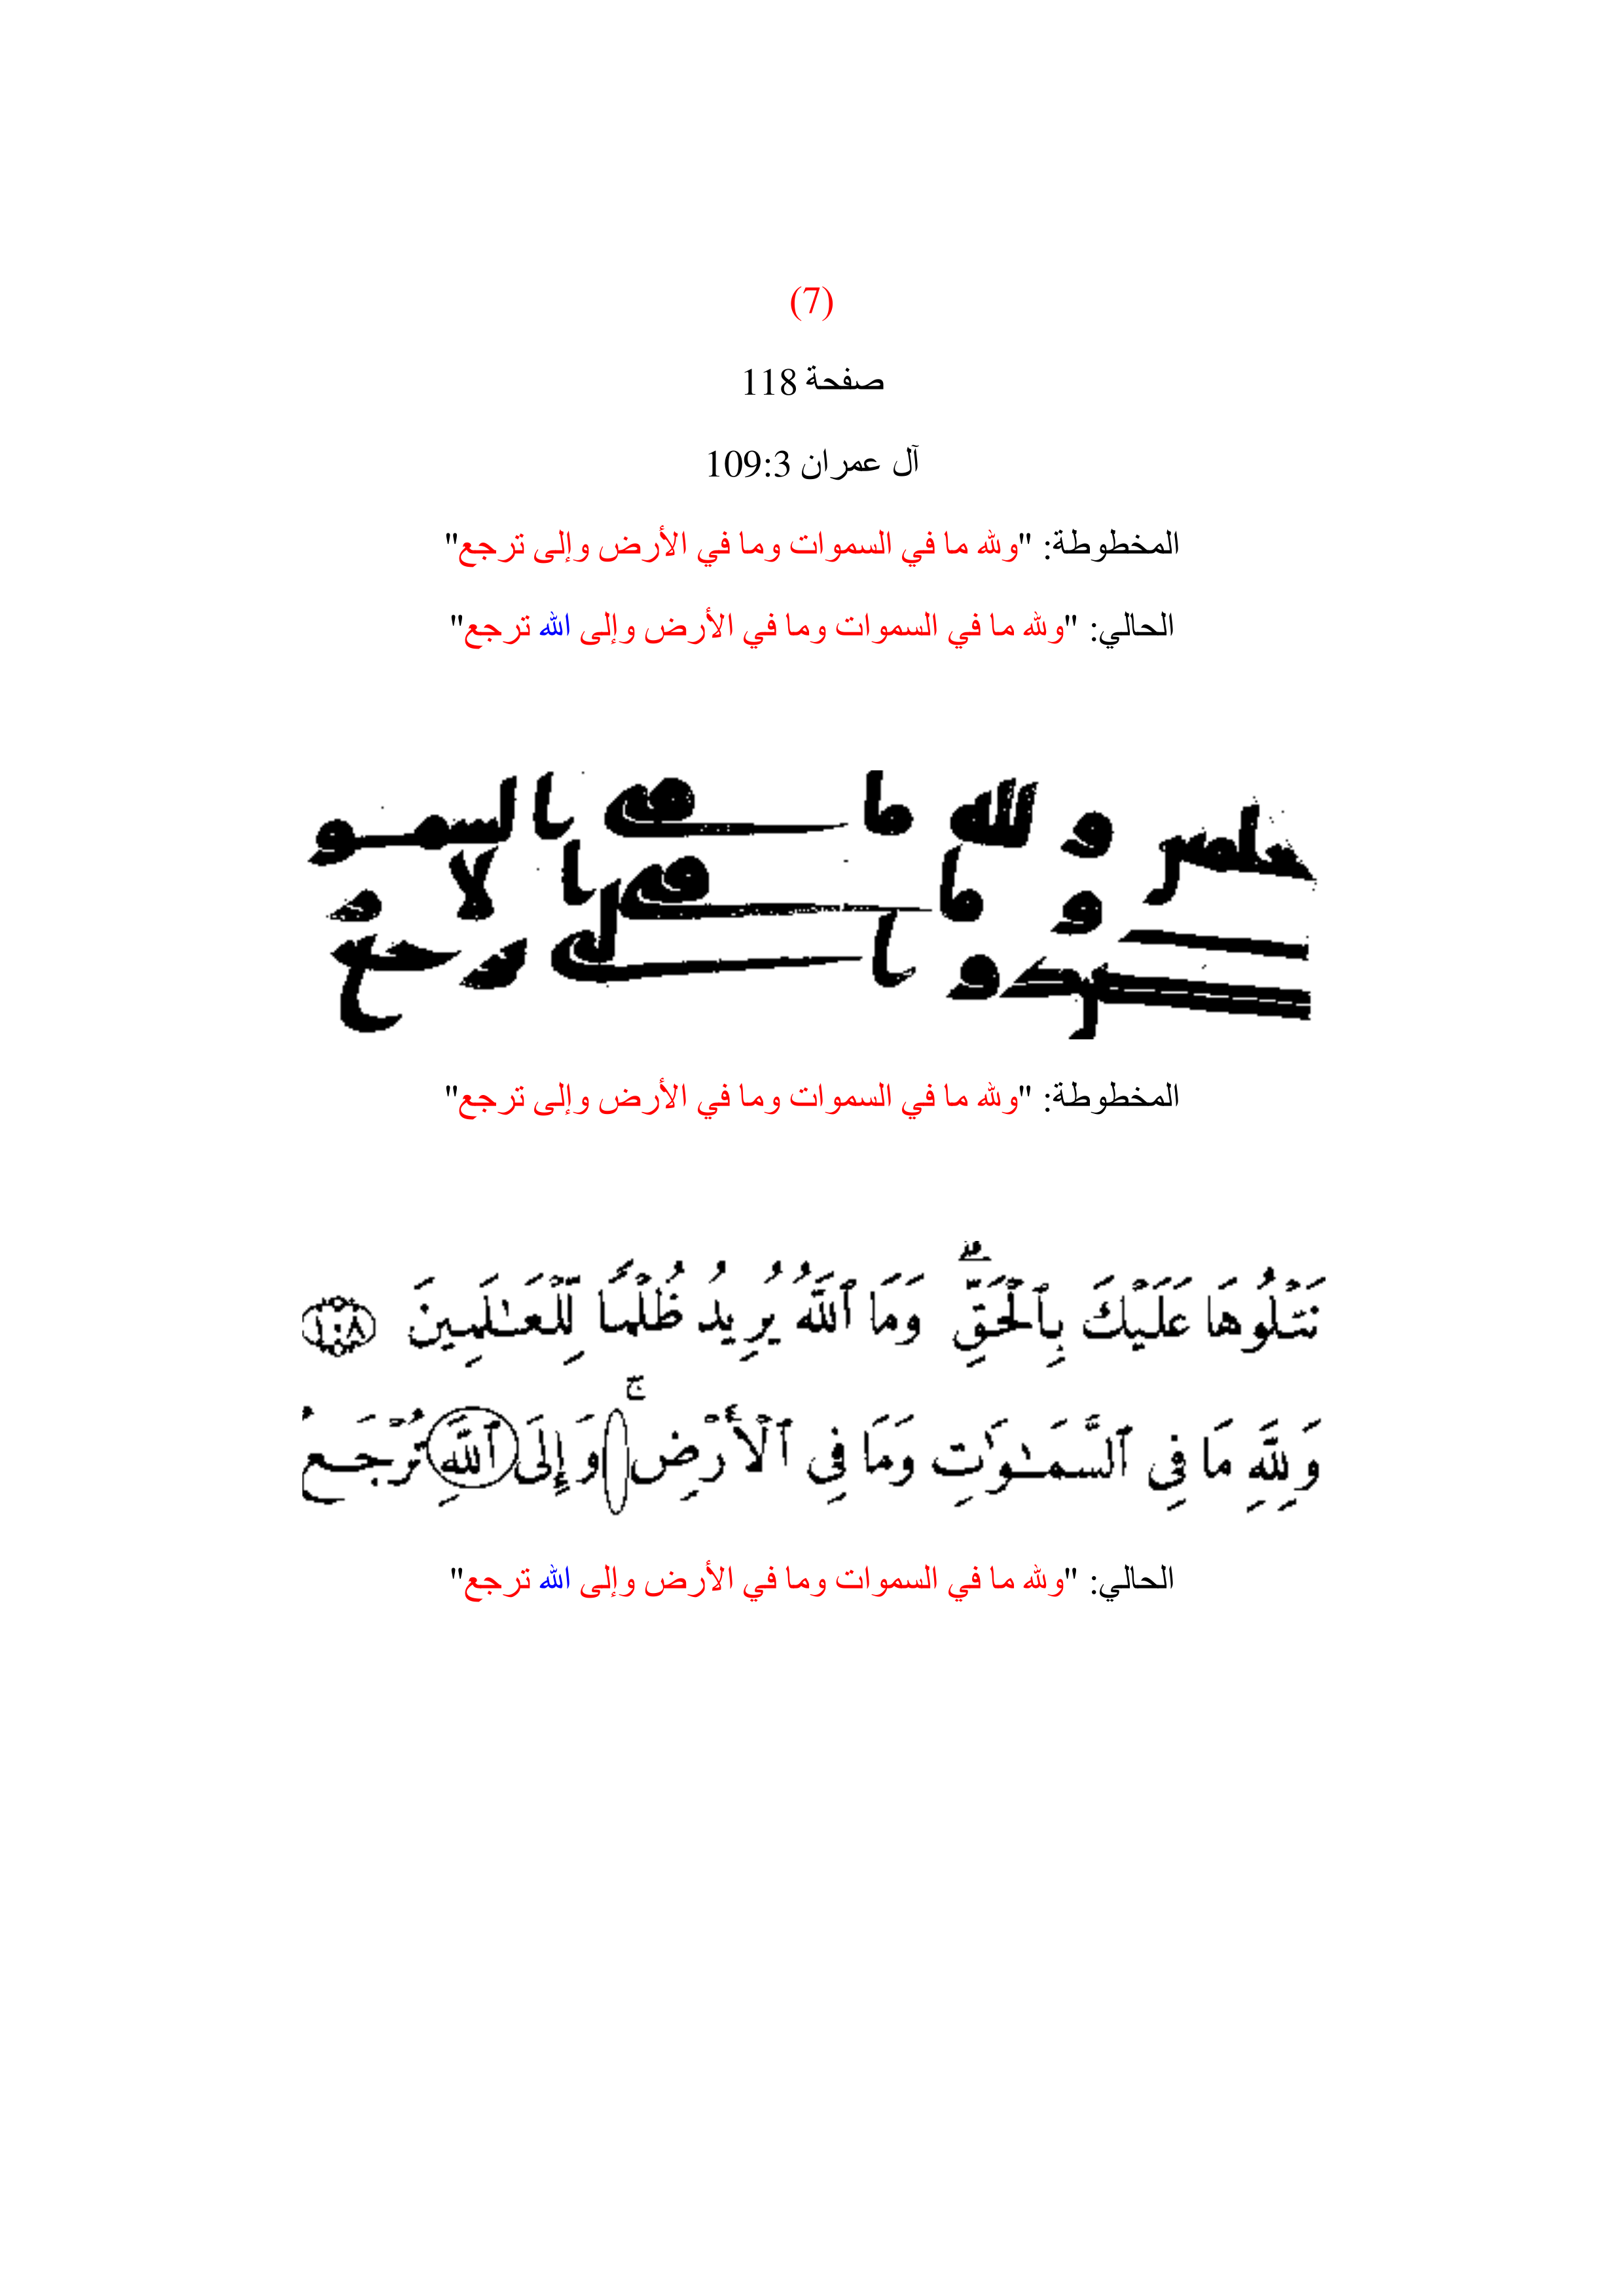 (7)
صفحة 118
آل عمران 109:3
المخطوطة: "ولله ما في السموات وما في الأرض وإلى ترجع"
الحالي: "ولله ما في السموات وما في الأرض وإلى الله ترجع"
و لله ما فى ا لسمو
و ما فى ا لا ر
و ا لى تر جع
المخطوطة: "ولله ما في السموات وما في الأرض وإلى ترجع"
نَتْلُوهَا عَلَيْكَ بِٱلْحَقِّ ۗ وَمَا ٱللَّهُ يُرِيدُ ظُلْمًا لِّلْعَـٰلَمِينَ ١٠٨
وَلِلَّهِ مَا فِي ٱلسَّمَـٰوَٰتِ وَمَا فِي ٱلْأَرْضِ ۚ وَإِلَى ٱللَّهِ تُرْجَعُ
الحالي: "ولله ما في السموات وما في الأرض وإلى الله ترجع"